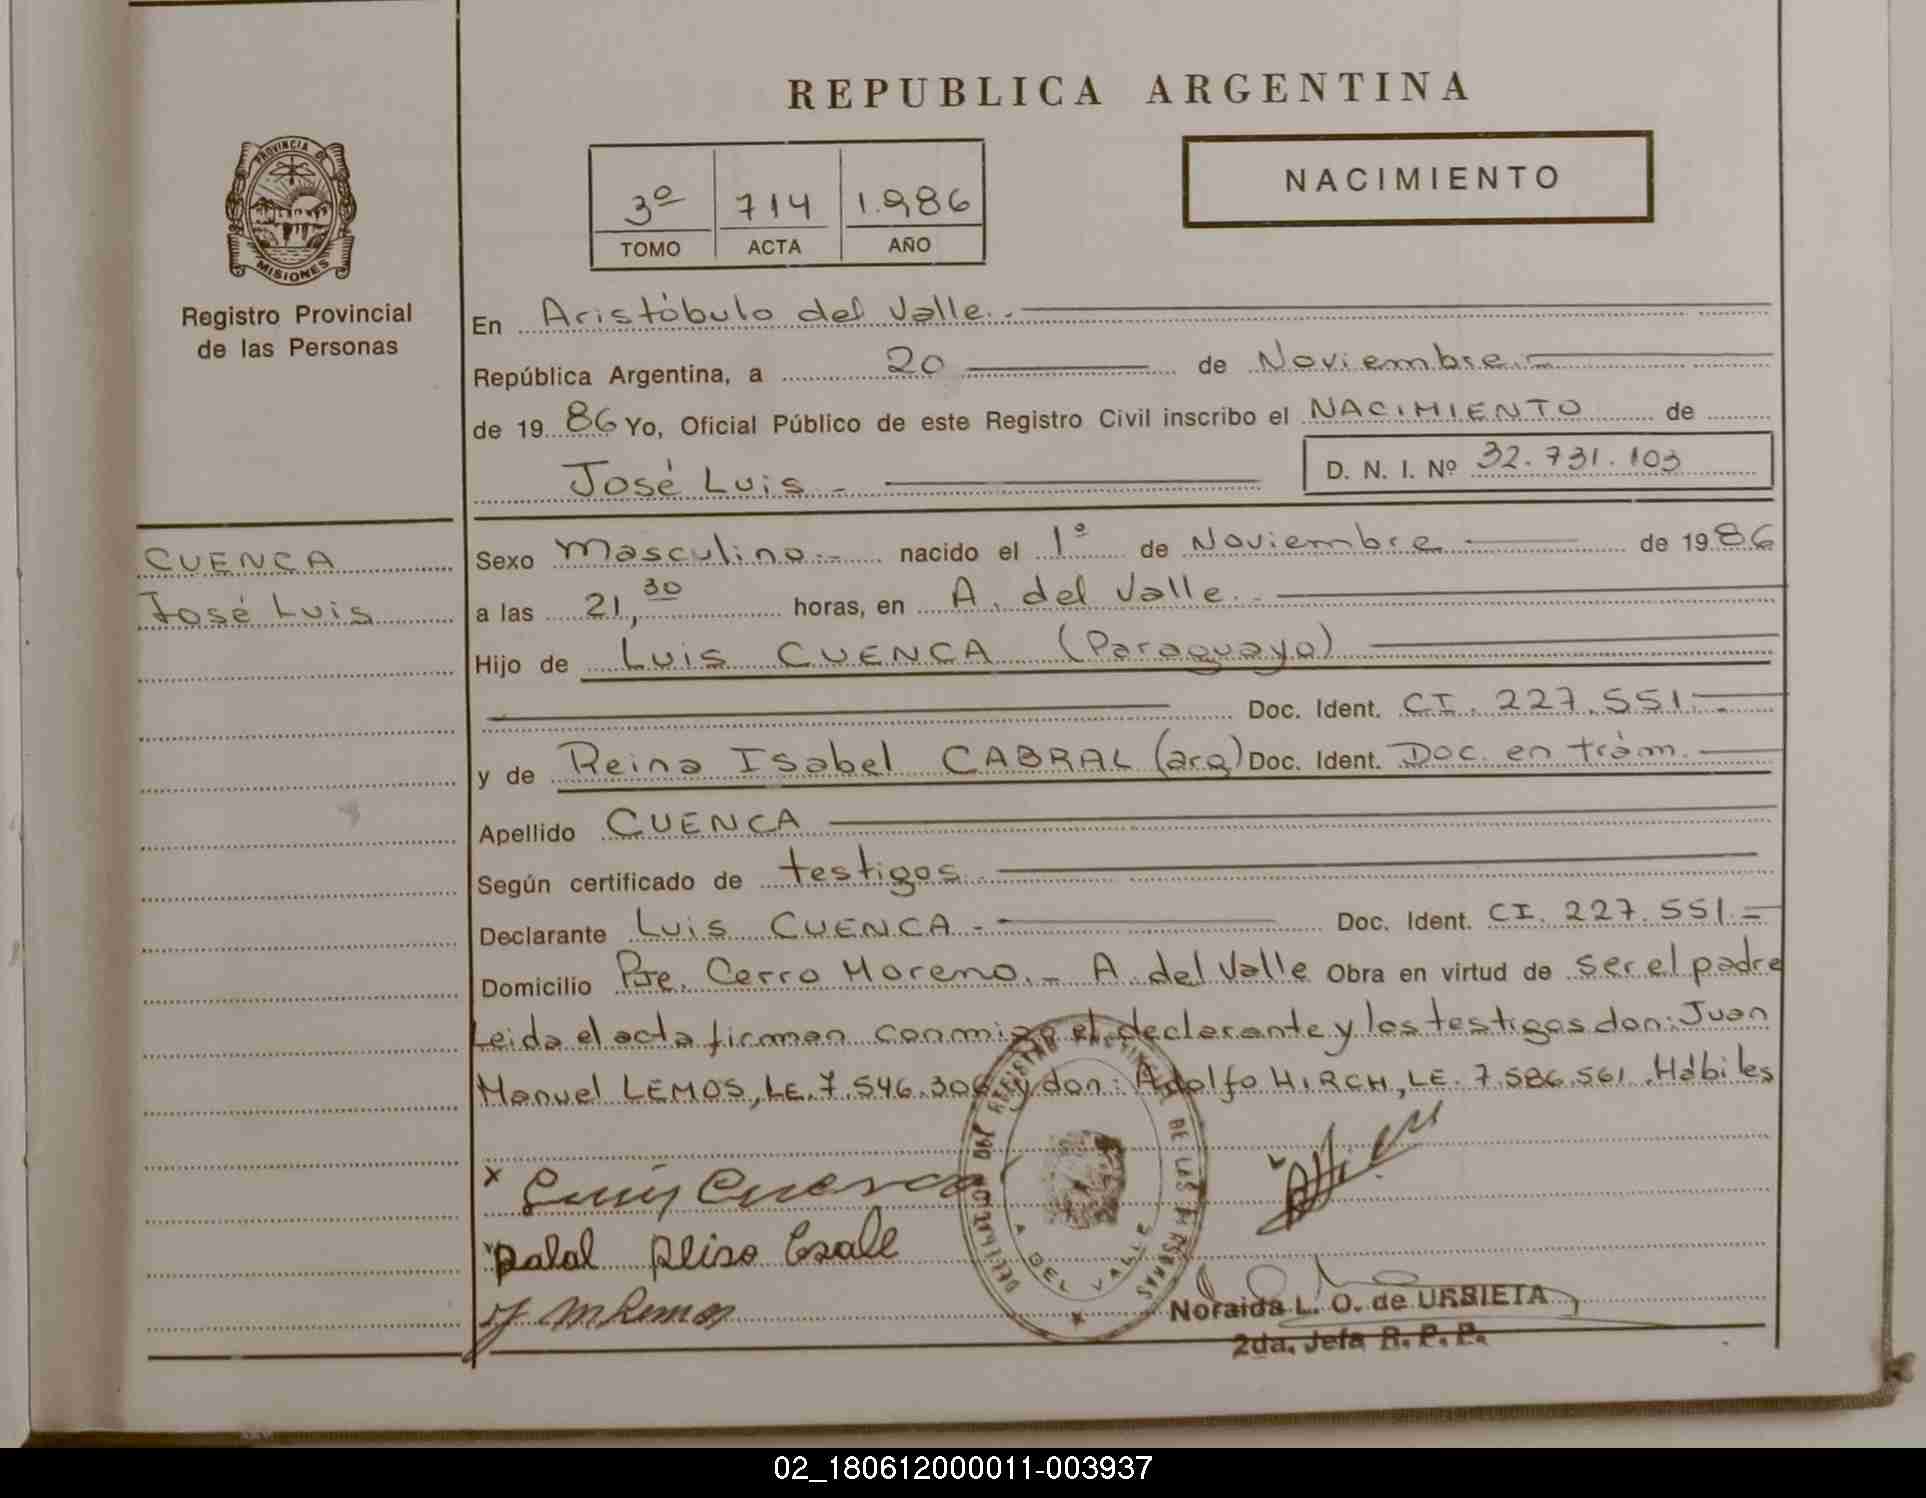 REPUBLICA ARGENTINA
PROVINCIA DE
MISIONES
Registro Provincial
de las Personas
3º 714 1.986
TOMO ACTA AÑO
NACIMIENTO
En Aristóbulo del Valle.-
República Argentina, a 20 de Noviembre.-
de 1986 Yo, Oficial Público de este Registro Civil inscribo el NACIMIENTO de
José Luis.- D. N. I. Nº 32.731.103
CUENCA
José Luis
Sexo Masculino.- nacido el 1º de Noviembre de 1986
a las 21,30 horas, en A. del Valle.-
Hijo de Luis CUENCA (Paraguayo)
Doc. Ident. CI. 227.551.-
y de Reina Isabel CABRAL (arg) Doc. Ident. Doc. en trám.
Apellido CUENCA
Según certificado de testigos.
Declarante Luis CUENCA.- Doc. Ident. CI. 227.551.-
Domicilio Pje. Cerro Moreno.- A. del Valle Obra en virtud de ser el padre
Leida el acta firman conmigo el declarante y los testigos don: Juan
Manuel LEMOS, LE. 7.546.306 y don: Adolfo HIRCH, LE. 7.586.561. Hábiles
x Luis Cuenca
DELEGACION DEL REGISTRO PROVINCIAL DE LAS PERSONAS
A DEL VALLE
Noraida L. O. de URBIETA
2da. Jefa R. P. P.
02_180612000011-003937